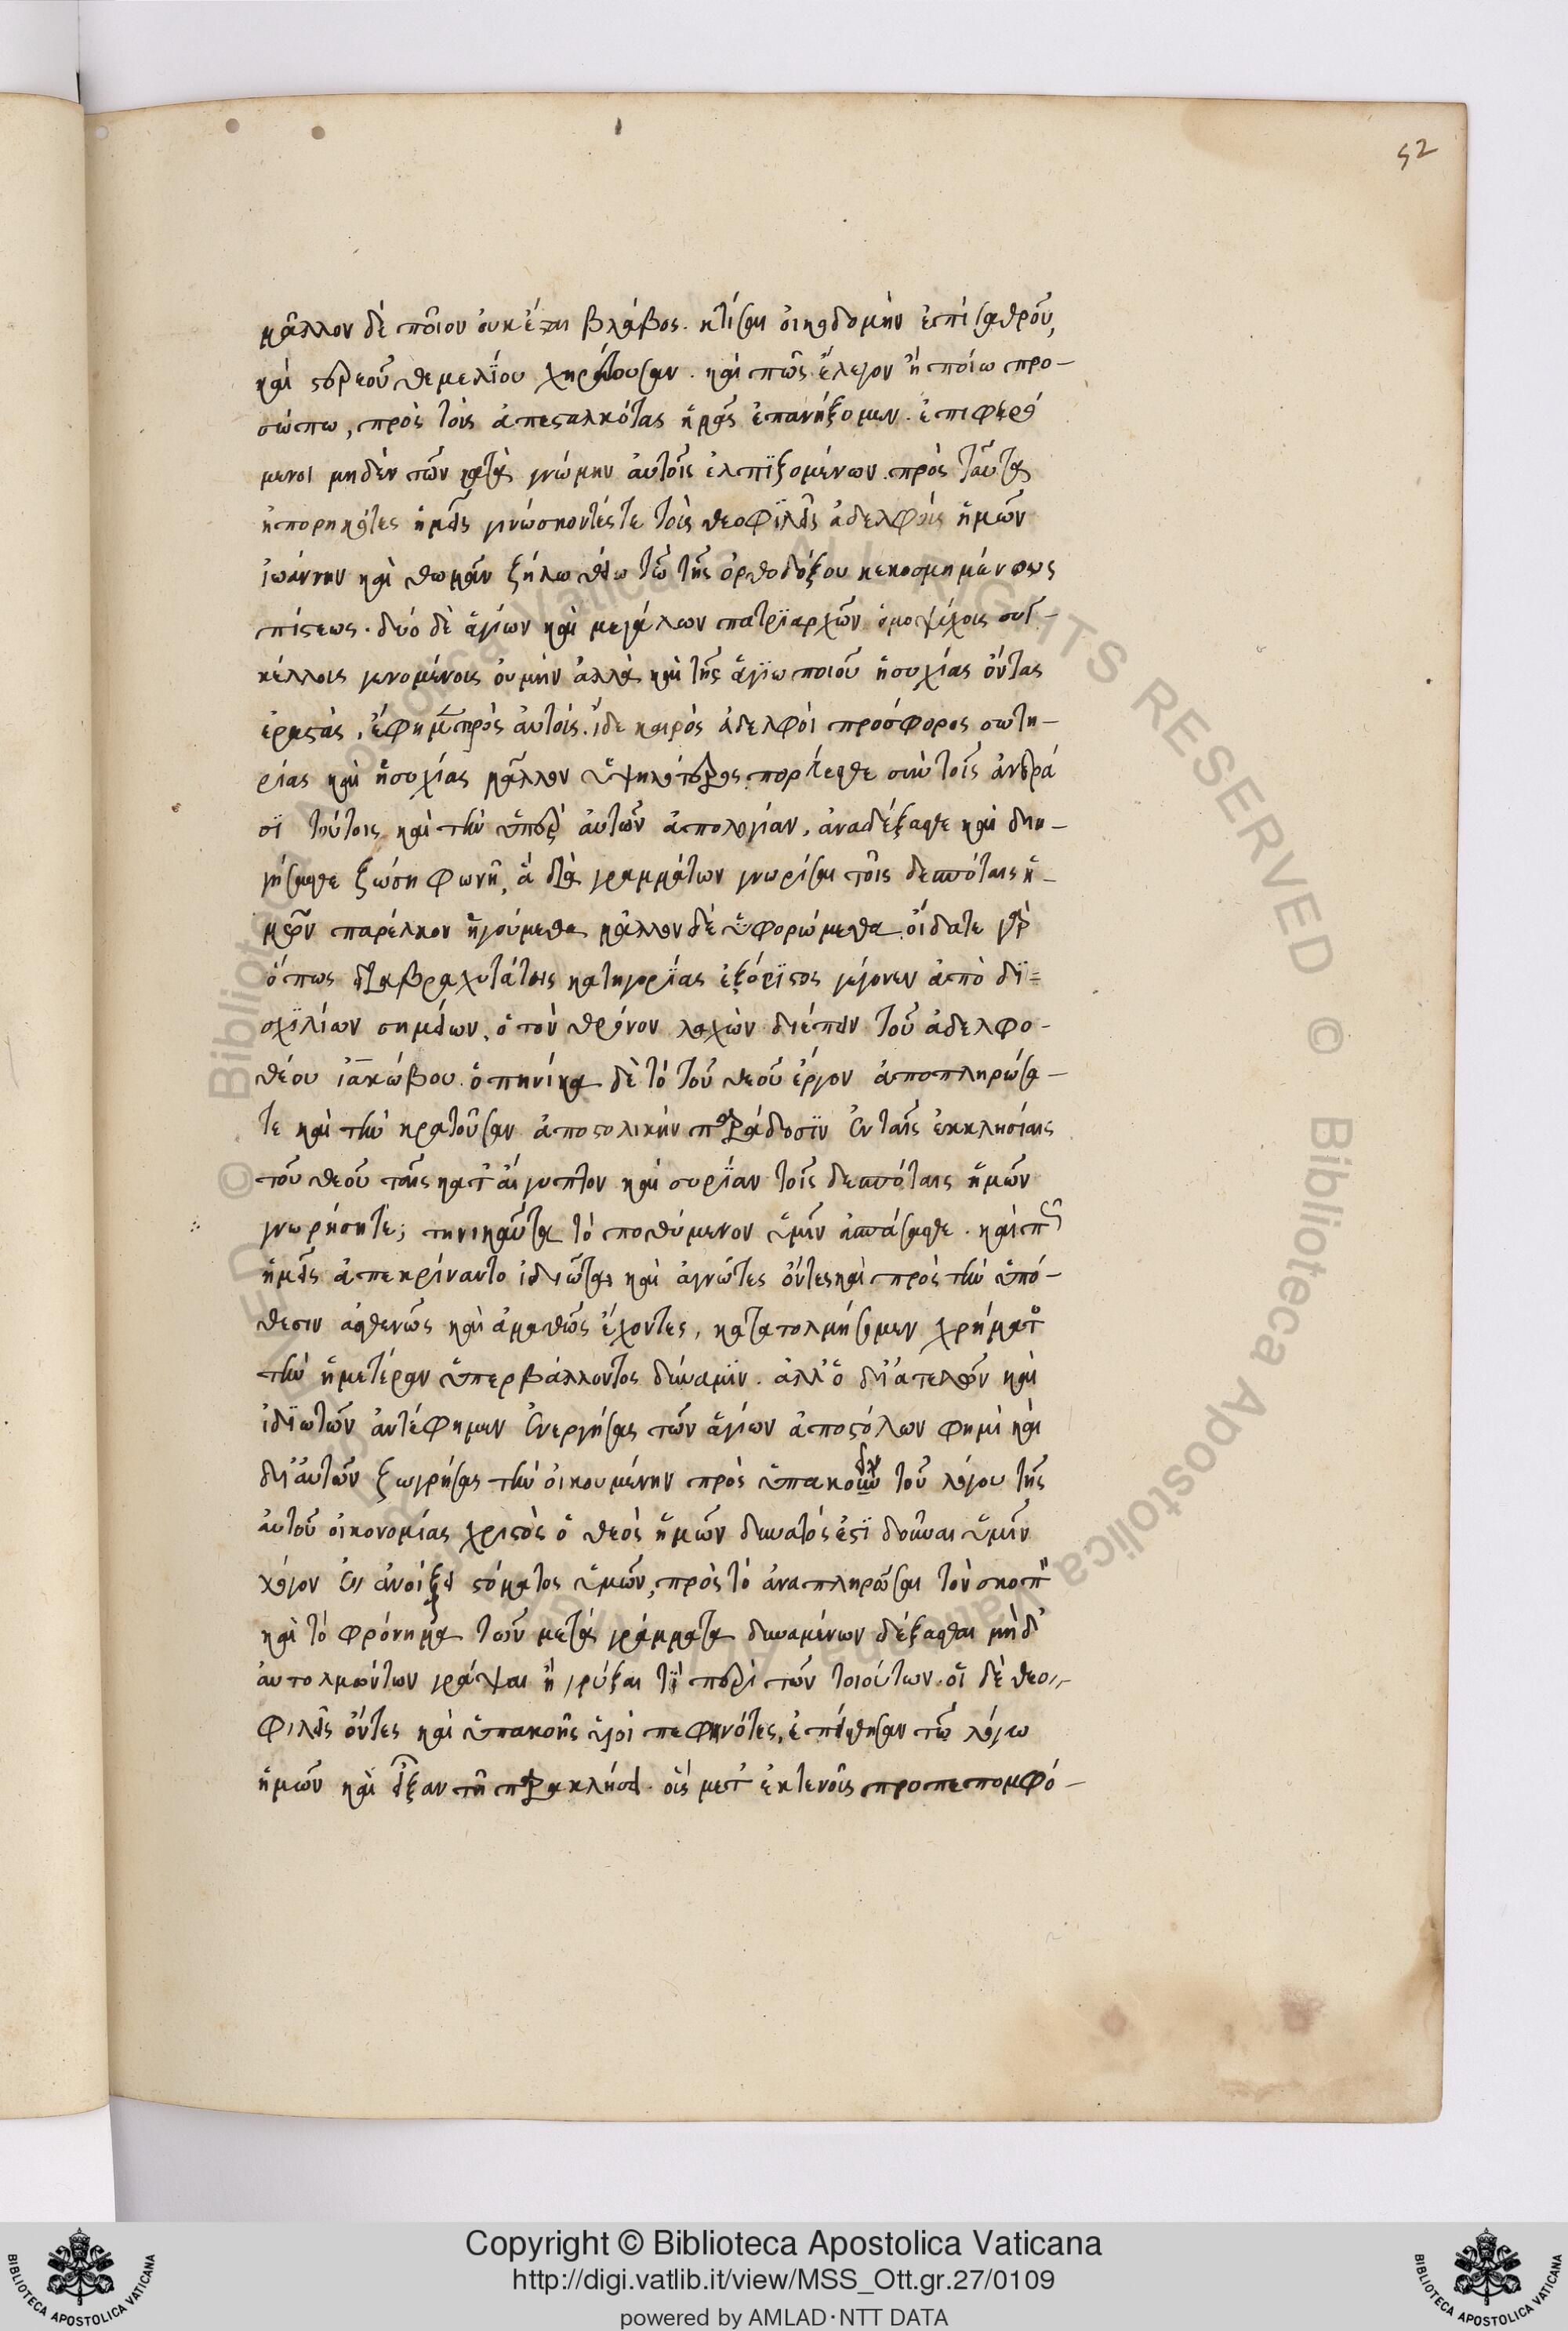 52
μᾶλλον δὲ ποῖον οὐκ έσται βλάβος. κτίσαι οἰκοδομὴν ἐπὶ σαθροῦ,
καὶ στερεοῦ θεμελΐου χηρεύουσαν. καὶ πῶς ἔλεγον ἢ ποίω προ-
σώπω, πρὸς τοὺς ἀπεσταλκότας ἡμᾶς ἐπανήξομεν. ἐπιφερό
μενοι μηδὲν τῶν κατὰ γνώμην αὐτοῖς ἐλπϊζομένων. πρὸς ταῦτα
ἠπορηκότες ἡμεῖς γινώσκοντές τε τοὺς θεοφϊλεῖς ἀδελφοὺς ἡμῶν
ἰωάννην καὶ θωμᾶν ζήλω θείω τῶ τῆς ὀρθοδόξου κεκοσμημένους
πίστεως. δύο δὲ ἁγίων καὶ μεγάλων πατρϊαρχῶν ὁμοψύχοις συγ-
κέλλοις γενομένοις οὐ μὴν ἀλλὰ καὶ τῆς ἁγϊωποιοῦ ἡσυχίας ὄντας
ἐραστὰς, ἔφημεν πρὸς αὐτοὺς. ἴδε καιρὸς ἀδελφοὶ πρόσφορος σωτη-
ρίας καὶ ἡσυχίας μᾶλλον ὑψηλότερος. πορεύεσθε σὺν τοῖς ἀνδρά
σϊ τούτοις καὶ τὴν ὑπὲρ αὐτῶν ἀπολογίαν, ἀναδέξασθε καὶ διη-
γήσασθε ζώση φωνῆ, ἃ διὰ γραμμάτων γνωρίσαι τοῖς δεσπόταις ἡ-
μῶν παρέλκον ἡγούμεθα μᾶλλον δὲ ὑφορώμεθα. οἴδατε γὰρ
ὅπως διὰ βραχυτάτης κατηγορΐας ἐξόρϊστος γέγονεν ἀπὸ δϊ=
σχϊλίων σημείων, ὁ τὸν θρόνον λαχὼν διέπειν τοῦ ἀδελφο-
θέου ἰακώβου. ὁπηνίκα δὲ τὸ τοῦ θεοῦ ἔργον ἀποπληρώσα-
τε καὶ τὴν κρατοῦσαν ἀποστολικὴν παράδοσϊν ἐν ταῖς ἐκκλησίαις
τοῦ θεοῦ ταῖς κατ' αἴγυπτον καὶ συρΐαν τοῖς δεσπόταις ἡμῶν
γνωρήσητε; τηνικαῦτα τὸ ποθύμενον ὑμῖν ἀσπάσασθε. καὶ πῶς
ἡμεῖς ἀπεκρίναντο ἰδιῶται καὶ ἀγνῶτες ὄντες καὶ πρὸς τὴν ὑπό-
θεσιν ἀσθενῶς καὶ ἀμαθῶς ἔχοντες, κατατολμήσομεν χρήματος
τὴν ἡμετέραν ὑπερβάλλοντος δύναμϊν. ἀλλ' ὁ δι' ἀτελῶν καὶ
ἰδϊωτῶν ἀντέφημεν ἐνεργήσας τῶν ἁγίων ἀποστόλων φημὶ καὶ
δι' αὐτῶν ζωγρήσας τὴν οἰκουμένην πρὸς ὑπακοὴν τοῦ λόγου τῆς
αὐτοῦ οἰκονομίας χριστὸς ὁ θεὸς ἡμῶν δυνατός ἐστϊ δοῦναι ὑμῖν
λόγον ἐν ἀνοίξει στόματος ὑμῶν, πρὸς τὸ ἀναπληρῶσαι τὸν σκοπὸν
καὶ τὸ φρόνημα τῶν μετὰ γράμματα δυναμένων δέξασθαι μὴ δ'
αὐτολμώντων γράψαι ἢ γρύξαι τϊ περὶ τῶν τοιούτων. οἱ δὲ θεο-
φιλεῖς ὄντες καὶ ὑπακοῆς ὑιοὶ πεφηνότες, ἐπείσθησαν τῶ λόγω
ἡμῶν καὶ εἶξαν τῆ παρακλήσει. οὓς μετ' ἐκτενοῦς προπεπομφό-
Copyright © Biblioteca Apostolica Vaticana
http://digi.vatlib.it/view/MSS_Ott.gr.27/0109
powered by AMLAD·NTT DATA